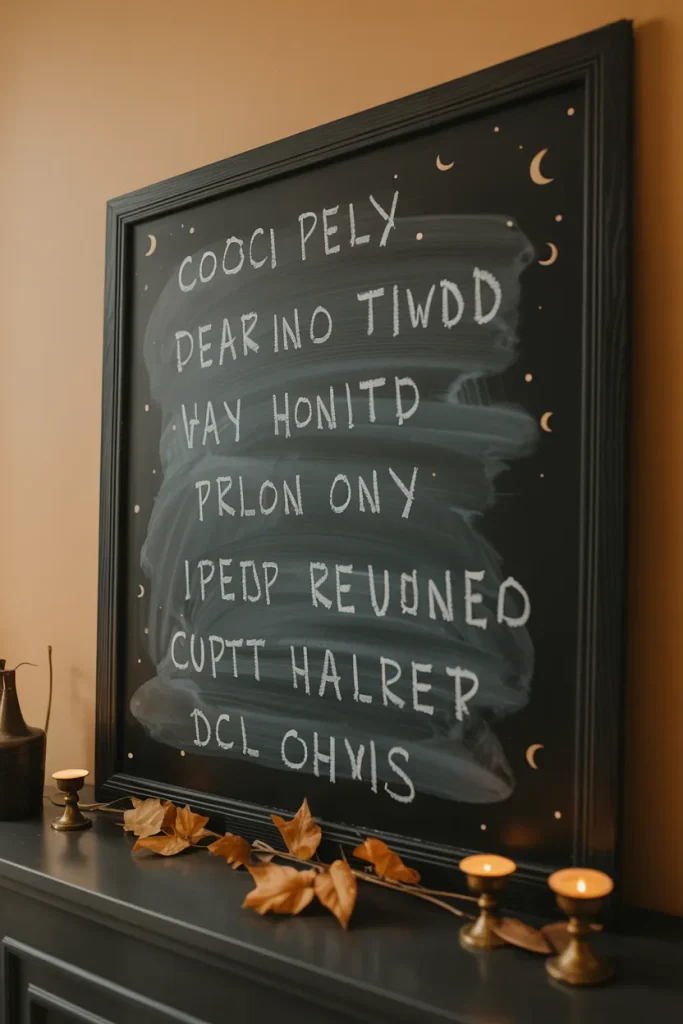 COOCI PELY
DEAR INO TIWDD
VAY HONITD
PRLON ONY
IPEDP REUONED
CUPTT HALRER
DCL OHVIS